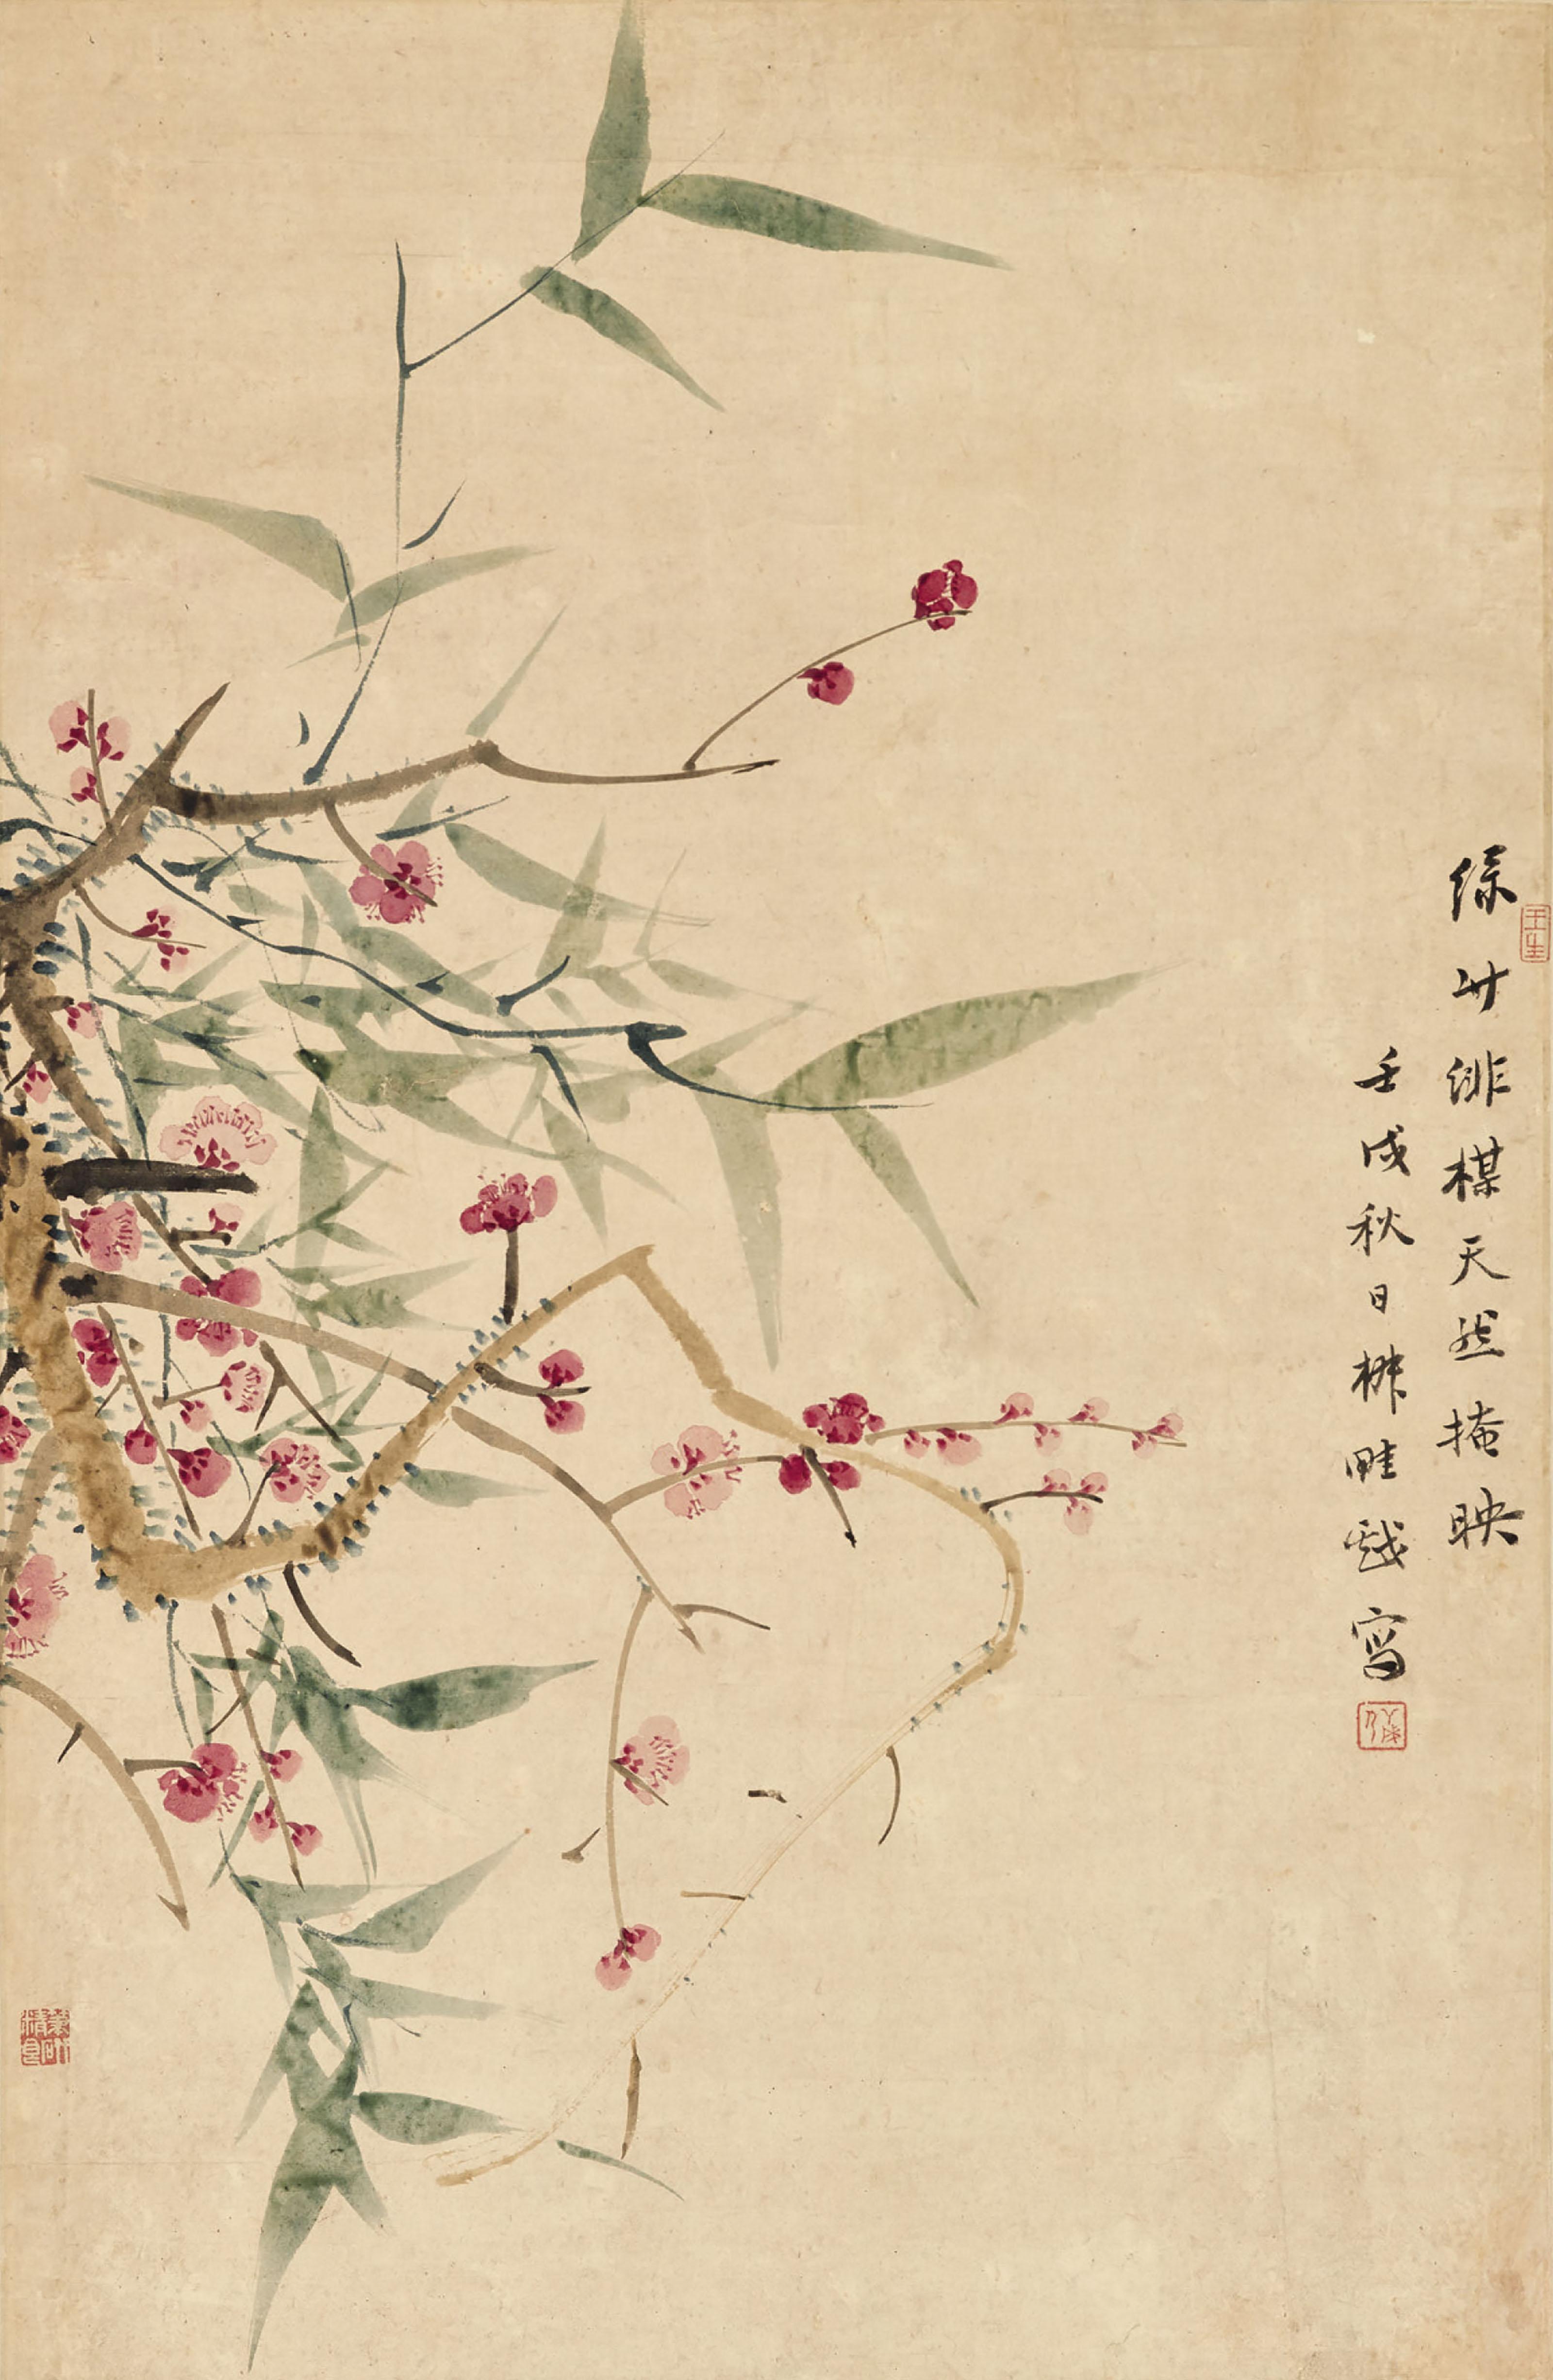 綠竹緋楳天然掩映
壬戌秋日柳畦戲寫